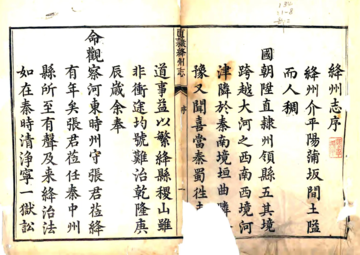 絳州志序
絳州介平陽蒲坂間土隘
而人稠
國朝陞直隸州領縣五其境
跨越大河之西南西境河
津隣於秦南境垣曲隣
豫又聞喜當秦蜀徃
直隸絳州志
序
道事益以繁絳縣稷山雖
非衝途均號難治乾隆庚
辰歲余奉
命觀察河東時州守張君莅絳
有年矣張君莅任秦中州
縣所至有聲及来絳治法
如在秦時清淨寧一獄訟